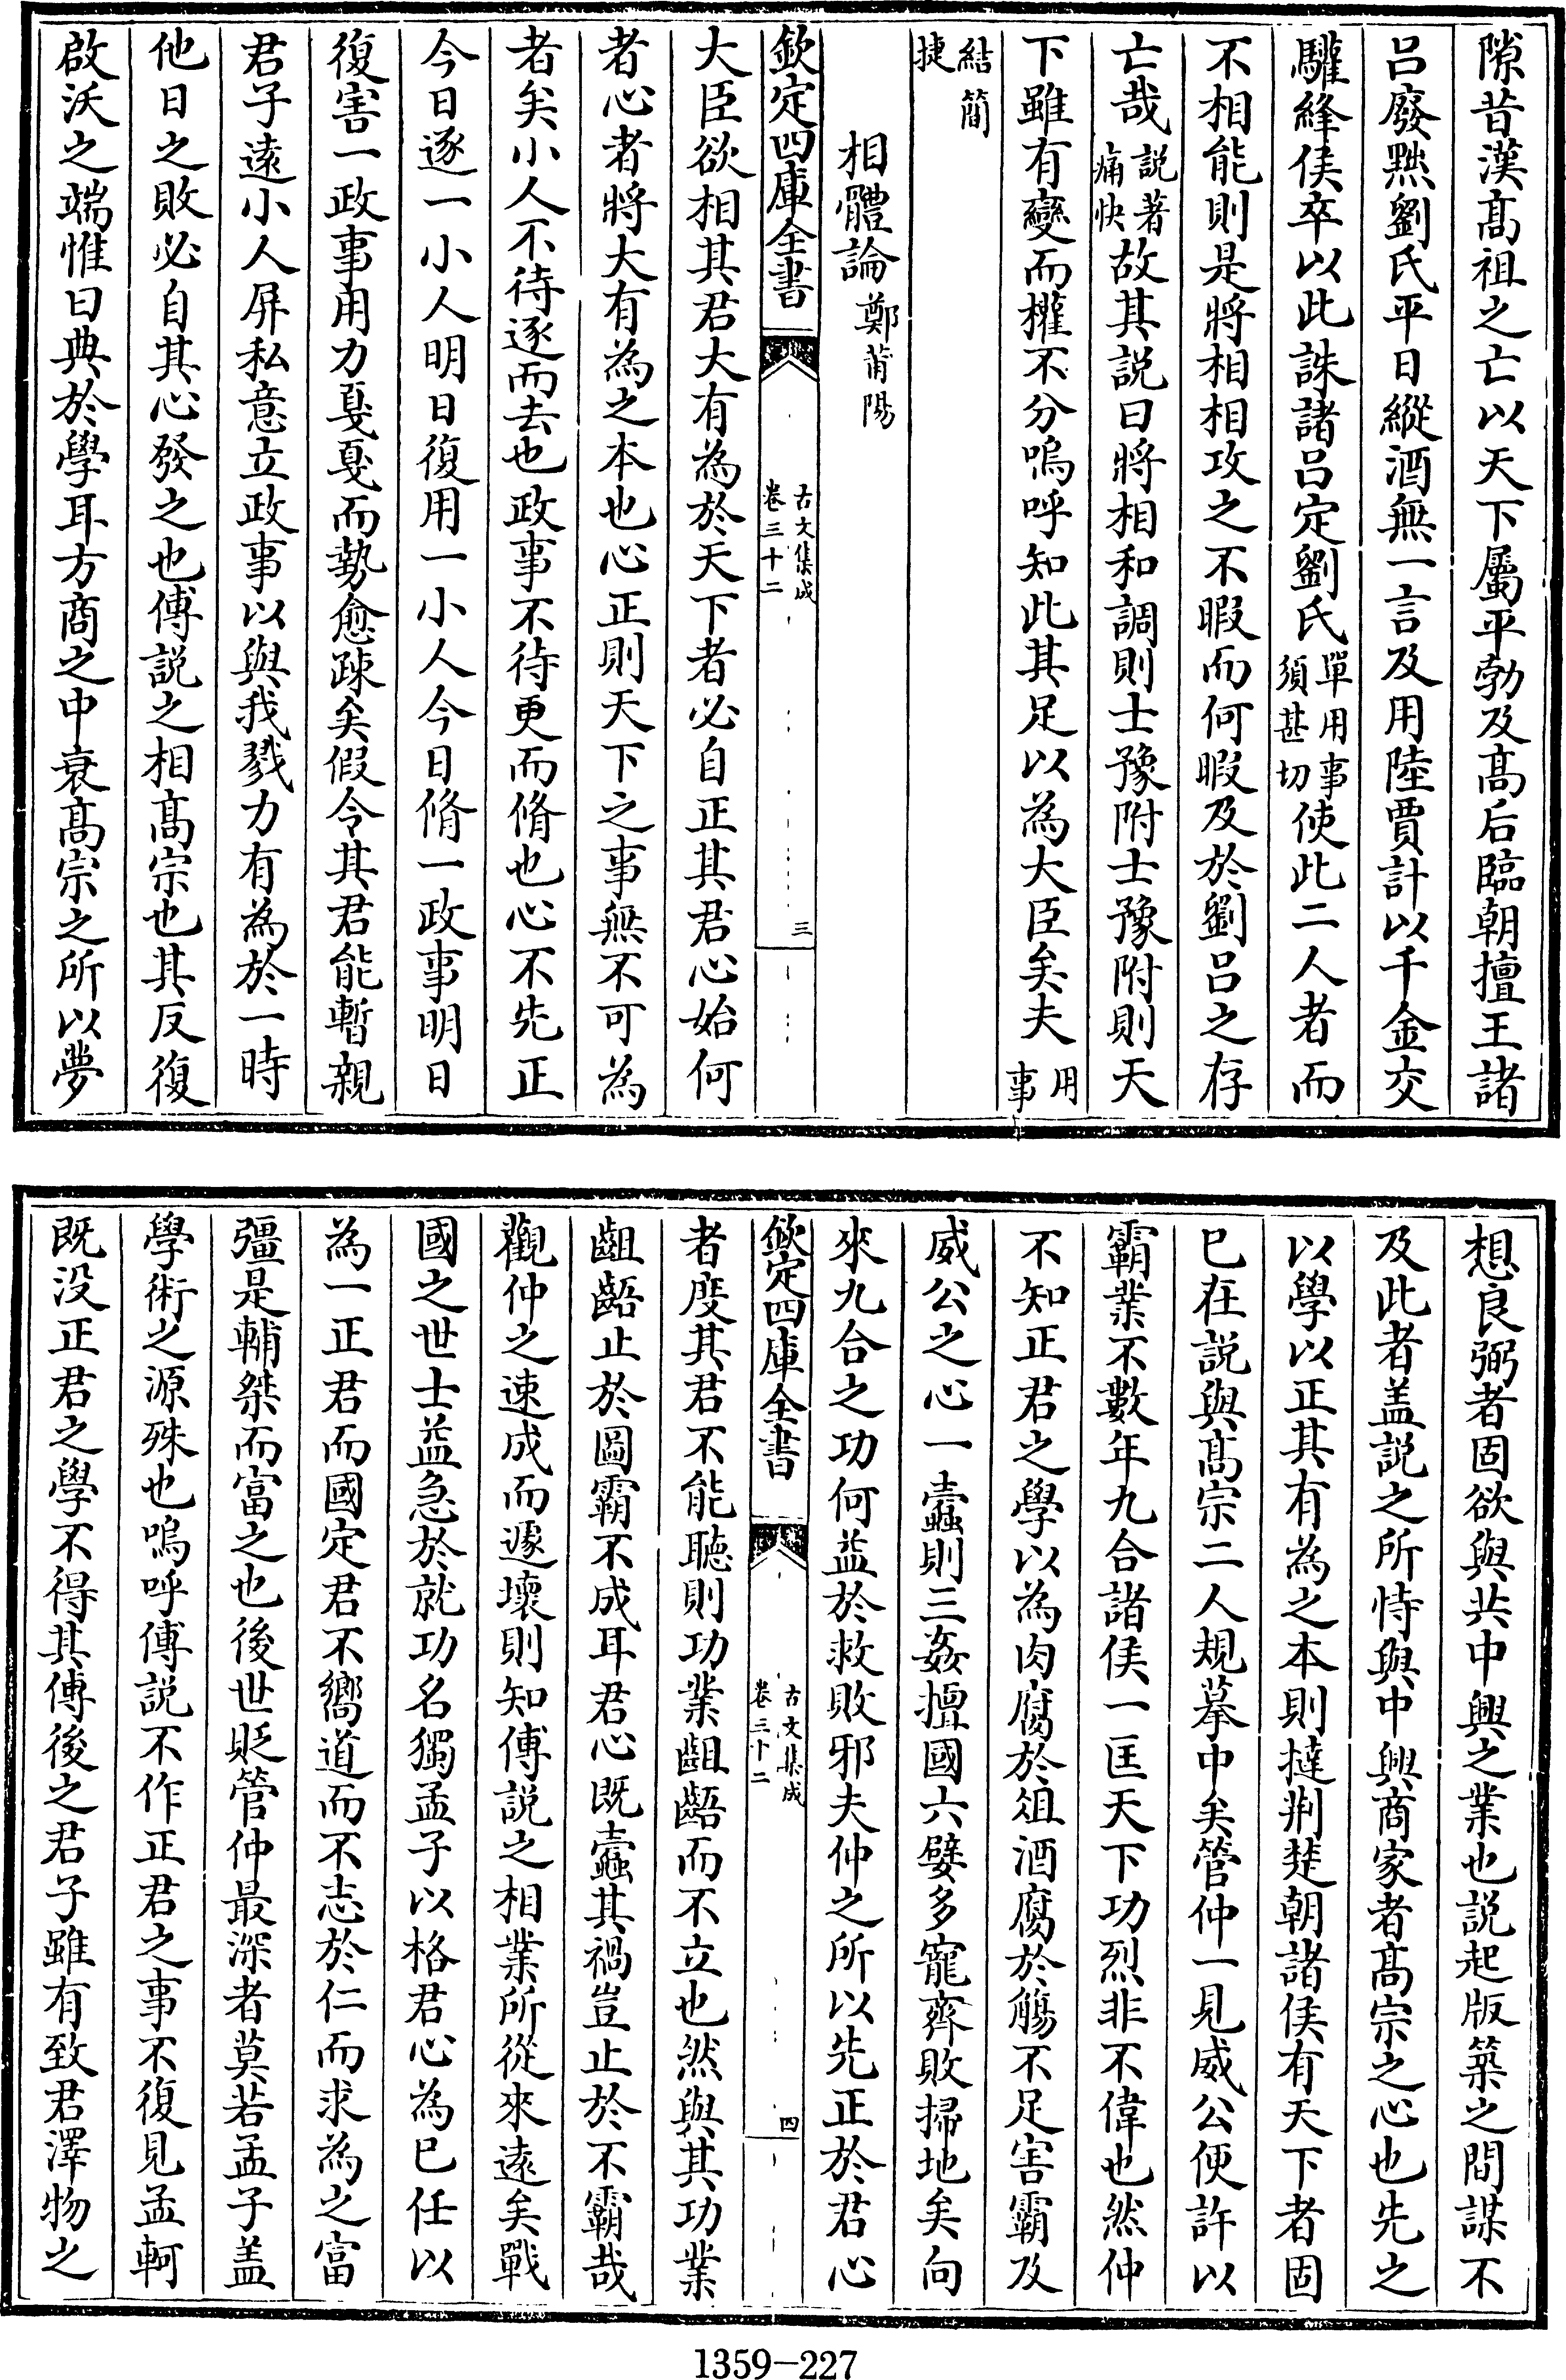 隙昔漢髙祖之亡以天下屬平勃及髙后臨朝擅王諸
呂廢黜劉氏平日縱酒無一言及用陸賈計以千金交
驩絳侯卒以此誅諸呂定劉氏單用事須甚切使此二人者而
不相能則是將相相攻之不暇而何暇及於劉呂之存
亡哉説著痛快故其説曰將相和調則士豫附士豫附則天
下雖有變而權不分嗚呼知此其足以為大臣矣夫用事
結簡捷
相體論鄭莆陽
欽定四庫全書
古文集成
卷三十二
三
大臣欲相其君大有為於天下者必自正其君心始何
者心者將大有為之本也心正則天下之事無不可為
者矣小人不待逐而去也政事不待更而脩也心不先正
今日逐一小人明日復用一小人今日脩一政事明日
復害一政事用力戛戛而勢愈疎矣假令其君能暫親
君子遠小人屏私意立政事以與我戮力有為於一時
他日之敗必自其心發之也傅説之相髙宗也其反復
啟沃之端惟曰典於學耳方商之中衰髙宗之所以夢
想良弼者固欲與共中興之業也説起版築之間謀不
及此者盖説之所恃與中興商家者髙宗之心也先之
以學以正其有為之本則撻荆楚朝諸侯有天下者固
已在説與髙宗二人規摹中矣管仲一見威公便許以
霸業不數年九合諸侯一匡天下功烈非不偉也然仲
不知正君之學以為肉腐於俎酒腐於觴不足害霸及
威公之心一蠧則三姦擅國六嬖多寵齊敗掃地矣向
來九合之功何益於救敗邪夫仲之所以先正於君心
欽定四庫全書
古文集成
卷三十二
四
者度其君不能聽則功業齟齬而不立也然與其功業
齟齬止於圖霸不成耳君心既蠧其禍豈止於不霸哉
觀仲之速成而遽壞則知傅説之相業所從來遠矣戰
國之世士益急於就功名獨孟子以格君心為已任以
為一正君而國定君不嚮道而不志於仁而求為之富
彊是輔桀而富之也後世貶管仲最深者莫若孟子盖
學術之源殊也嗚呼傅説不作正君之事不復見孟軻
既没正君之學不得其傳後之君子雖有致君澤物之
1359-227